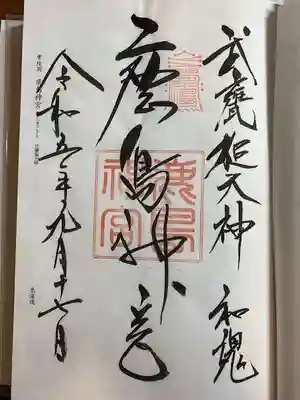 武甕槌大神 和魂
鹿島神宮
鹿島神宮
令和五年九月十六日